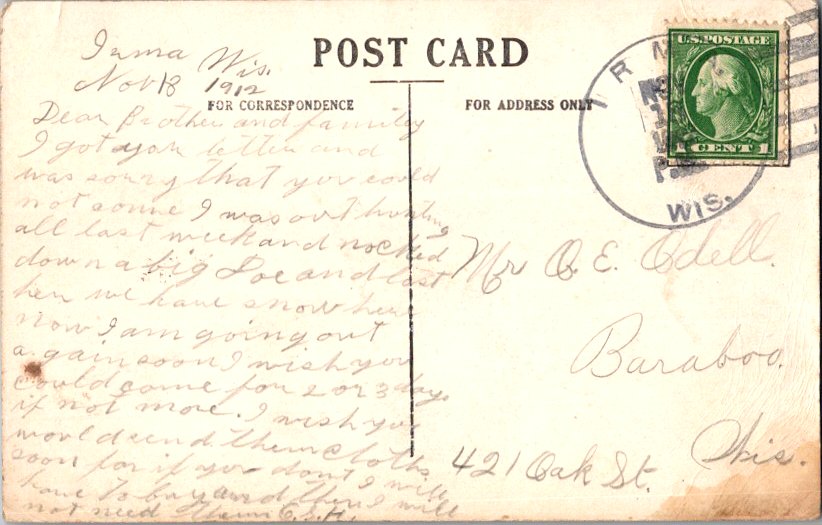 POST CARD
FOR CORRESPONDENCE
FOR ADDRESS ONLY
Irma Wis.
Nov 18 1912
Dear Brother and family
I got your letter and
was sorry that you could
not come I was out hunting
all last week and nocked
down a big Doe and lost
her we have snow here
now I am going out
again soon I wish you
could come for 2 or 3 days
if not more. I wish you
would send them cloths
soon for if you dont I will
have to buy and then I will
not need them E.S.H.
Mr O. E. Odell.
Baraboo.
421 Oak St. Wis.
IRM
WIS.
U.S. POSTAGE
CENT